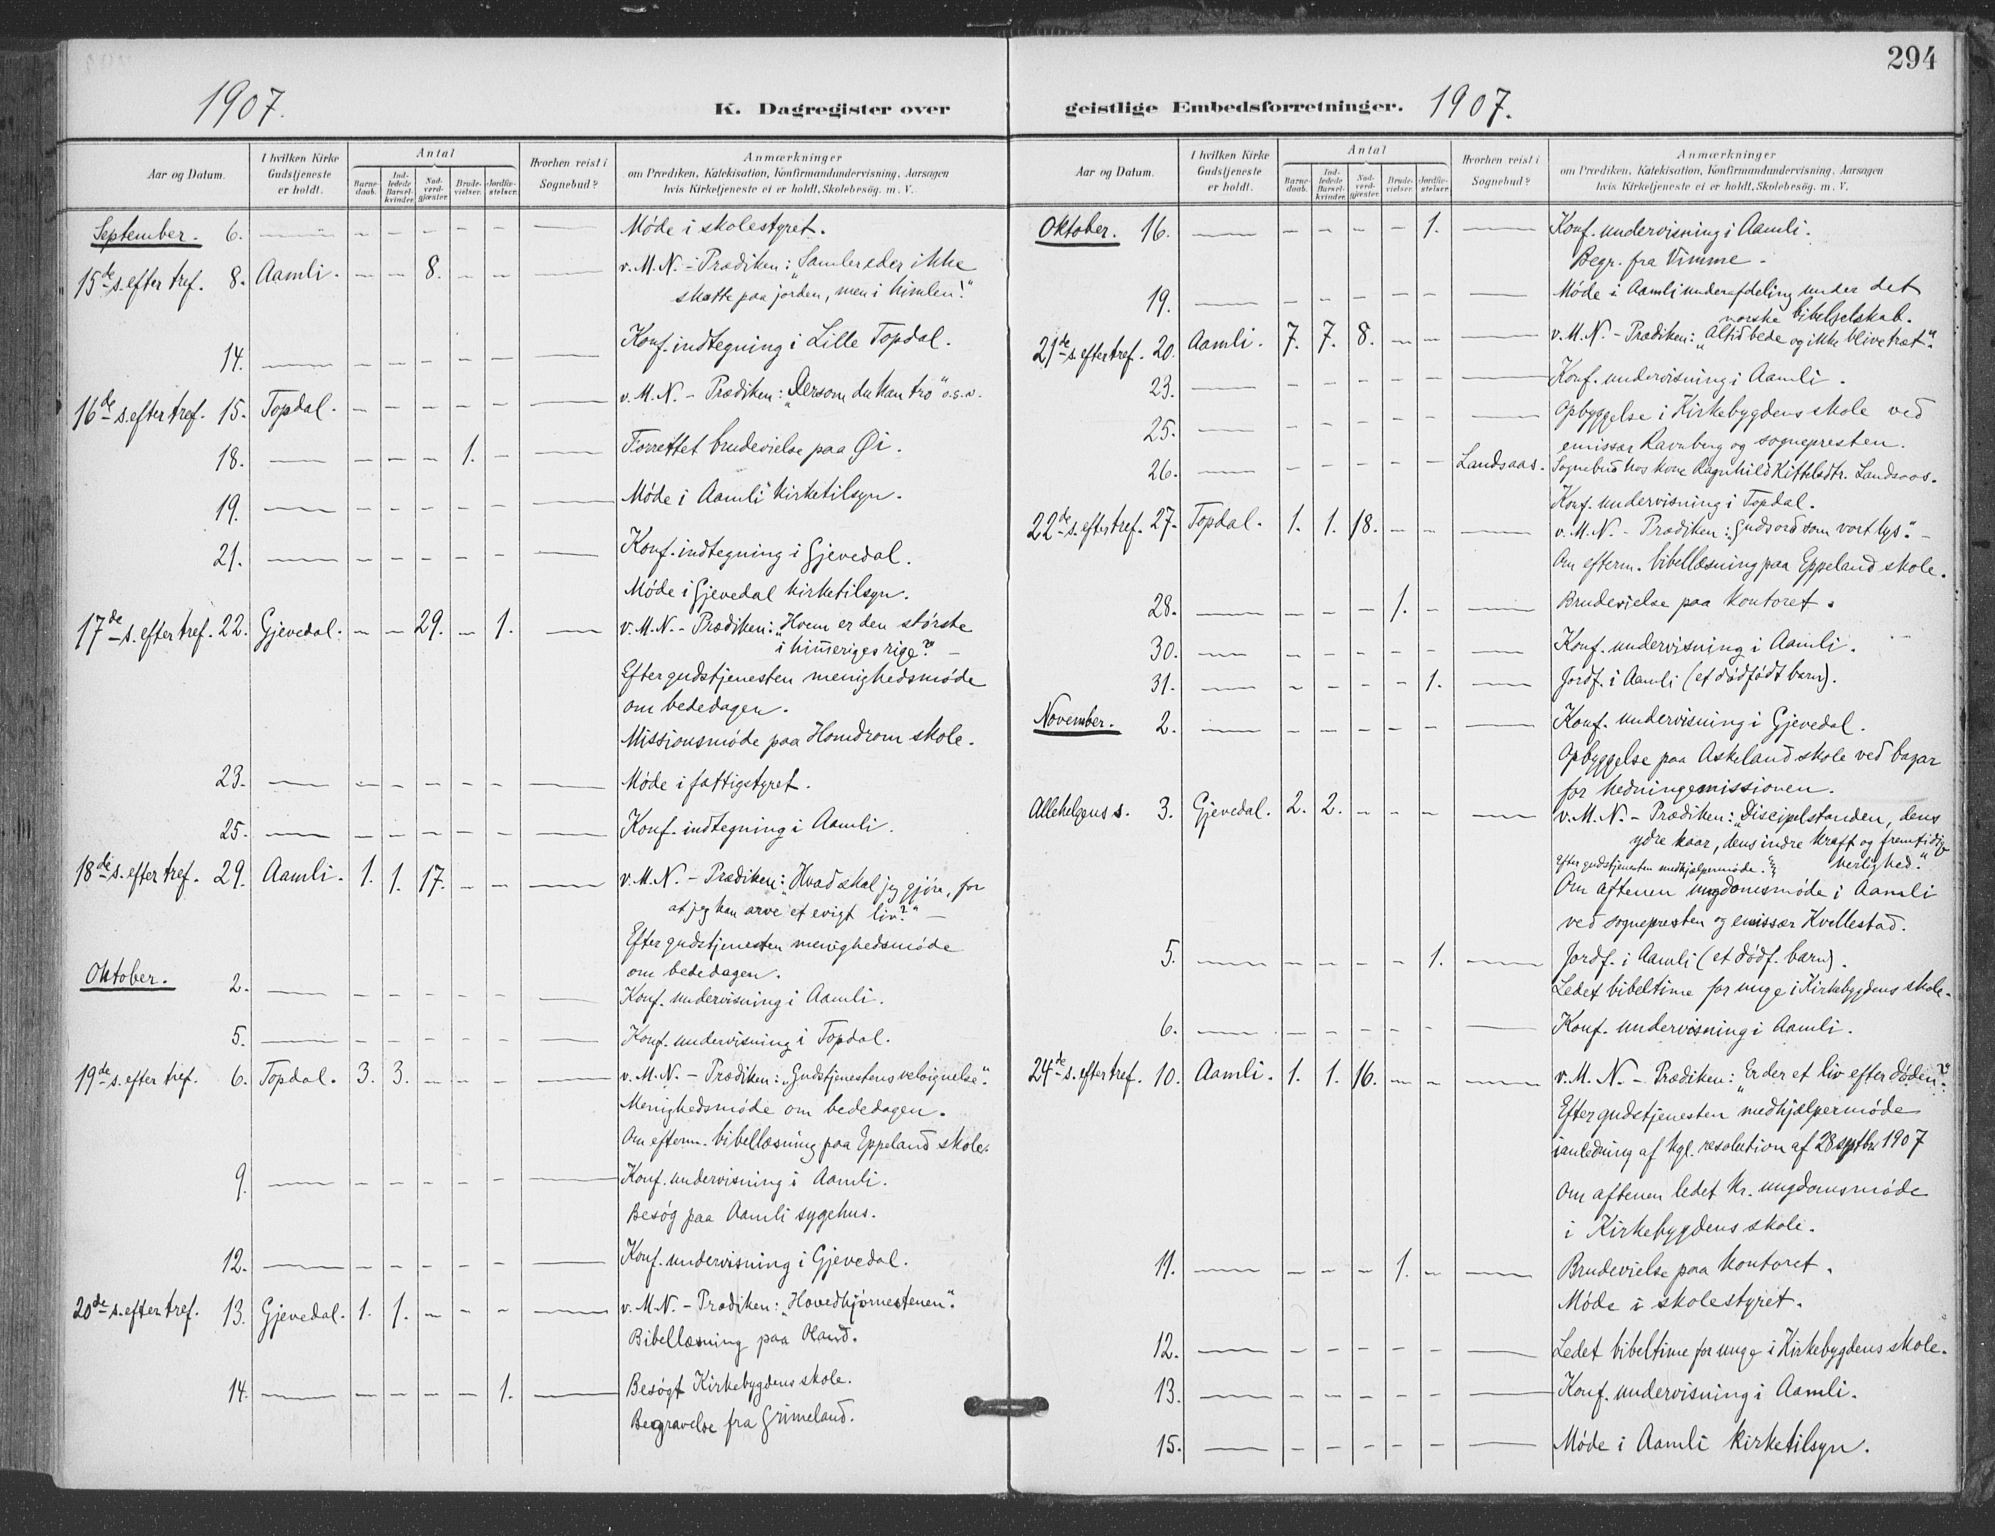 1907.
K. Dagregister over
Aar og Datum.
I hvilken Kirke Gudstjeneste er holdt.
Antal
Barnedaab.
Indledede Barselkvinder.
Nadverdgjæster.
Brudevielser.
Jordfæstelser.
Hvorhen reist i Sognebud?
Anmærkninger
om Prædiken, Katekisation, Konfirmandundervisning, Aarsagen
hvis Kirketjeneste ei er holdt, Skolebesøg. m. V.
September. 6. — — — — — — — Møde i skolestyret.
15de s. efter tref. 8. Aamli. — — 8. — — — v. M. N. - Prædiken: "Samler eder ikke
skatte paa jorden, men i himlen!"
14. — — — — — — — Konf. indtegning i Lille Topdal.
16de s. efter tref. 15. Topdal. — — — — — — v. M. N. - Prædiken: "Dersom du kan tro" o.s.v.
18. — — — — 1. — — Forrettet brudevielse paa Øi.
19. — — — — — — — Møde i Aamli kirketilsyn.
21. — — — — — — — Konf. indtegning i Gjevedal.
Møde i Gjevedal kirketilsyn.
17de s. efter tref. 22. Gjevedal. — — 29. — 1. — v. M. N. - Prædiken: "Hvem er den største
i himmeriges rige?" —
Efter gudstjenesten menighedsmøde
om bededagen.
Missionsmøde paa Homdrom skole.
23. — — — — — — — Møde i fattigstyret.
25. — — — — — — — Konf. indtegning i Aamli.
18de s. efter tref. 29. Aamli. 1. 1. 17. — — — v. M. N. - Prædiken: "Hvad skal jeg gjøre, for
at jeg kan arve et evigt liv?" —
Efter gudstjenesten menighedsmøde
om bededagen.
Oktober. 2. — — — — — — — Konf. undervisning i Aamli.
5. — — — — — — — Konf. undervisning i Topdal.
19de s. efter tref. 6. Topdal. 3. 3. — — — — v. M. N. - Prædiken: "Gudstjenestens velsignelse".
Menighedsmøde om bededagen.
Om efterm. bibellæsning paa Eppeland skole.
9. — — — — — — — Konf. undervisning i Aamli.
Besøg paa Aamli sygehus.
12. — — — — — — — Konf. undervisning i Gjevedal.
20de s. efter tref. 13. Gjevedal. 1. 1. — — — — v. M. N. - Prædiken: "Hovedhjørnestenen".
Bibellæsning paa Oland.
14. — — — — — 1. — Besøgt Kirkebygdens skole.
Begravelse fra Grimeland.
294
geistlige Embedsforretninger. 1907.
Aar og Datum.
I hvilken Kirke Gudstjeneste er holdt.
Antal
Barnedaab.
Indledede Barselkvinder.
Nadverdgjæster.
Brudevielser.
Jordfæstelser.
Hvorhen reist i Sognebud?
Anmærkninger
om Prædiken, Katekisation, Konfirmandundervisning, Aarsagen
hvis Kirketjeneste ei er holdt, Skolebesøg. m. V.
Oktober. 16. — — — — — 1. — Konf. undervisning i Aamli.
Begr. fra Vimme.
19. — — — — — — — Møde i Aamli underafdeling under det
norske bibelselskab.
21de s. efter tref. 20. Aamli. 7. 7. 8. — — — v. M. N. - Prædiken: "Altid bede og ikke blive træt".
23. — — — — — — — Konf. undervisning i Aamli.
25. — — — — — — — Opbyggelse i Kirkebygdens skole ved
emissær Ravnberg og sognepresten.
26. — — — — — — Landsaas. Sognebud hos kone Ragnhild Kittelsdtr. Landsaas.
Konf. undervisning i Topdal.
22de s. efter tref. 27. Topdal. 1. 1. 18. — — — v. M. N. - Prædiken: "Guds ord som vort lys." —
Om efterm. bibellæsning paa Eppeland skole.
28. — — — — 1. — — Brudevielse paa kontoret.
30. — — — — — — — Konf. undervisning i Aamli.
31. — — — — — 1. — Jordf. i Aamli (et dødfødt barn).
November. 2. — — — — — — — Konf. undervisning i Gjevedal.
Opbyggelse paa Askeland skole ved bazar
for hedningemissionen.
Allehelgens s. 3. Gjevedal. 2. 2. — — — — v. M. N. - Prædiken: "Discipelstanden, dens
ydre kaar, dens indre kraft og fremtidig
herlighed."
Efter gudstjenesten medhjælpermøde.
Om aftenen ungdomsmøde i Aamli
ved sognepresten og emissær Kvellestad.
5. — — — — — 1. — Jordf. i Aamli (et dødf. barn).
Ledet bibeltime for unge i Kirkebygdens skole.
6. — — — — — — — Konf. undervisning i Aamli.
24de s. efter tref. 10. Aamli. 1. 1. 16. — — — v. M. N. - Prædiken: "Er der et liv efter døden?"
Efter gudstjenesten medhjælpermøde
i anledning af kgl. resolution af 28 septbr 1907
Om aftenen ledet kr. ungdomsmøde
i Kirkebygdens skole.
11. — — — — 1. — — Brudevielse paa kontoret.
Møde i skolestyret.
12. — — — — — — — Ledet bibeltime for unge i Kirkebygdens skole.
13. — — — — — — — Konf. undervisning i Aamli.
15. — — — — — — — Møde i Aamli kirketilsyn.